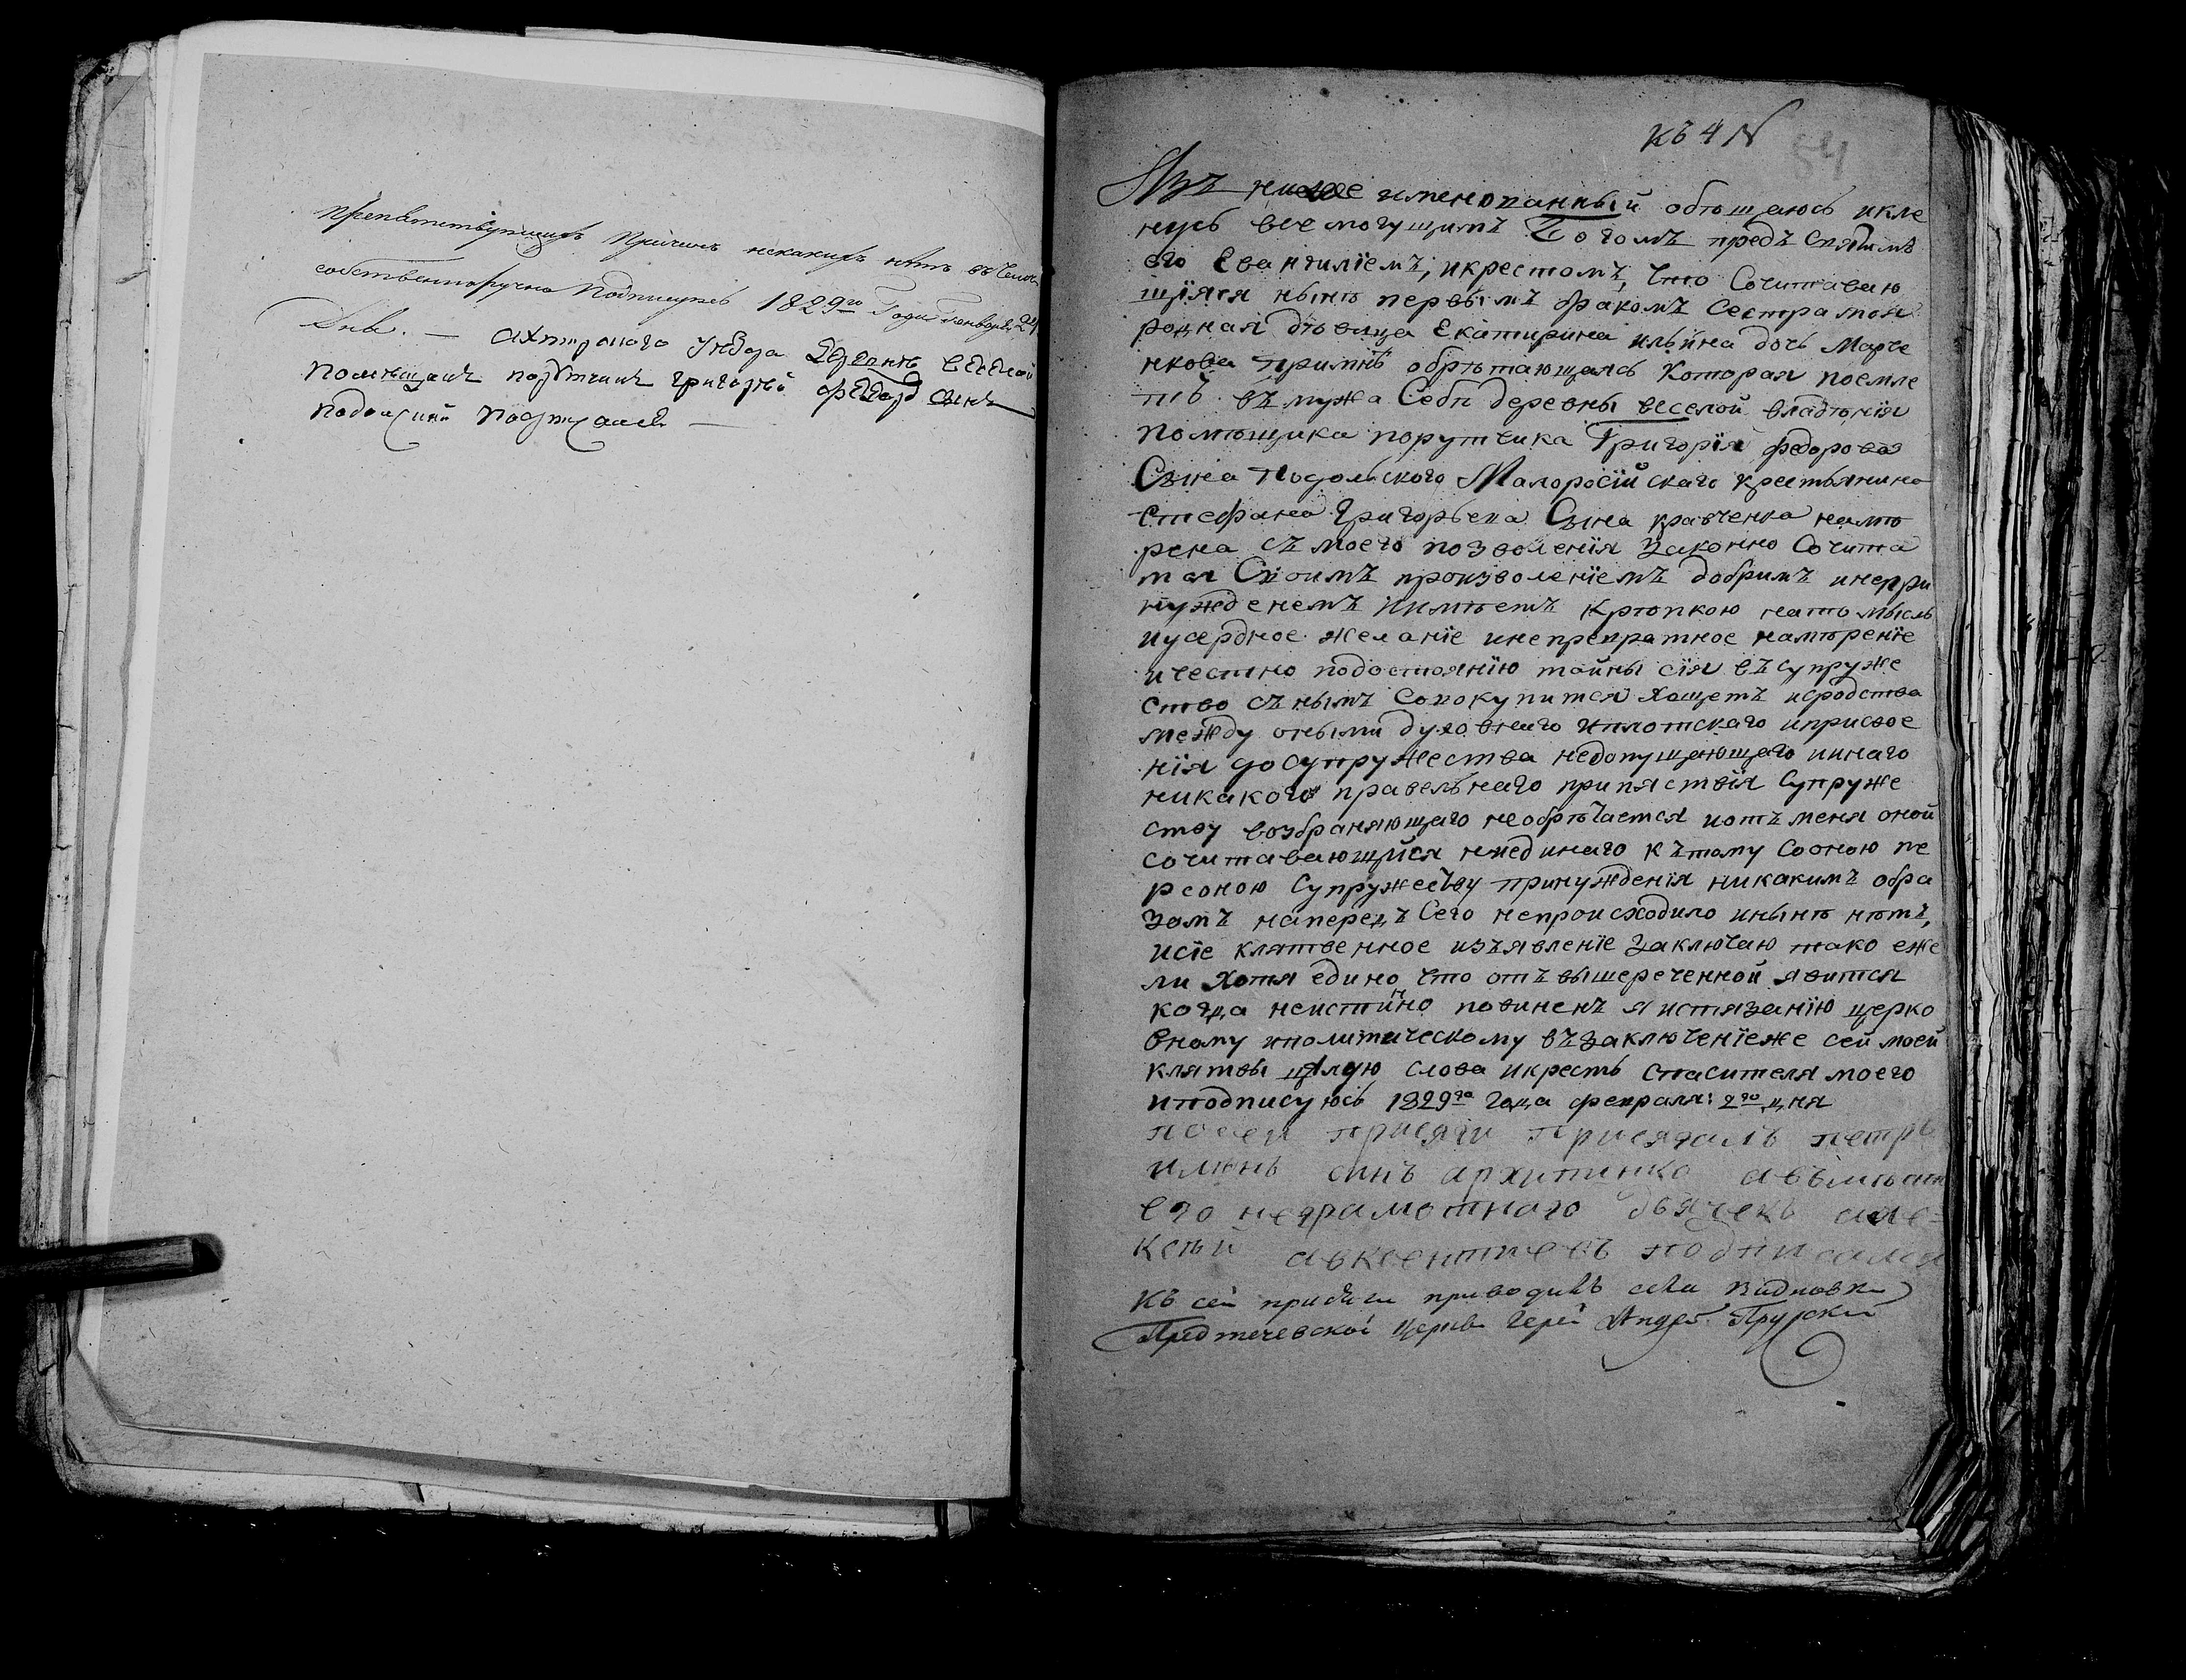 препятствующихъ причинъ некакихъ нѣтъ въ чемъ
собственноручно Подписуюсь 1829го Года Генваря 24
Дня. — Ахтирского уѣзда Деревнѣ веселой
Помещикъ порутчикъ григорій федор сынъ
подолский
къ 4 N
54
Язъ ниже имянованный обѣщаюсь икле
нусь всемогущимъ Богомъ предъ Святимъ
его Евангилїемъ, икрестомъ, что Сочитаваю
щїяся нынѣ первымъ бракомъ Сестра моя
родная дѣвица Екатирина ильина дочь Марче
нкова примнѣ обрѣтающаясь Которая поемле
тъ въ мужа Себѣ деревны веселой владѣнїя
помѣщика порутчика Григорїя федорова
Сына Подольского Малоросїйскаго крестьянина
стефана Григорьева Сына кравченка намѣ
рена съ моего позволенїя Законно Сочита
тся Своимъ произволенїемъ добримъ инепри
нужденемъ иимѣетъ крѣпкою нато мысль
иусердное желанїе инепревратное намѣренїе
ичестно подостоянїю тайны сїя въ супруже
ство съ нымъ Совокупится хощетъ исродства
между оными духовнаго иплотскаго иприсвое
нїя досупружества недопущающаго иинаго
никакого правельнаго припяствїя Супруже
ству возбраняющаго необрѣтается иотъ меня оной
сочитавающйся ниединаго къ тому Сооною пе
рсоною Супружеству принужденїя никакимъ обра
зомъ напередъ Сего непроисходило инынѣ нѣтъ,
исїе клятвенное изъявленїе Заключаю тако еже
ли Хотя едино что отъ вышереченной явится
когда неистинно повиненъ я истязанїю церко
вному иполитическому въ заключенїеже сей моей
клятвы цѣлую слова икрестъ спасителя моего
иподписуюсь 1829го года февраля: 2го дня
посей присяги присягалъ петръ
илїнъ синъ архипенко авъмѣсто
его неграмотнаго дьячекъ але=
ксѣй авксентиевъ подписался
Къ сей присяги приводилъ села Видновки
Предтечевской Церкви Іерей Андрей Прурский